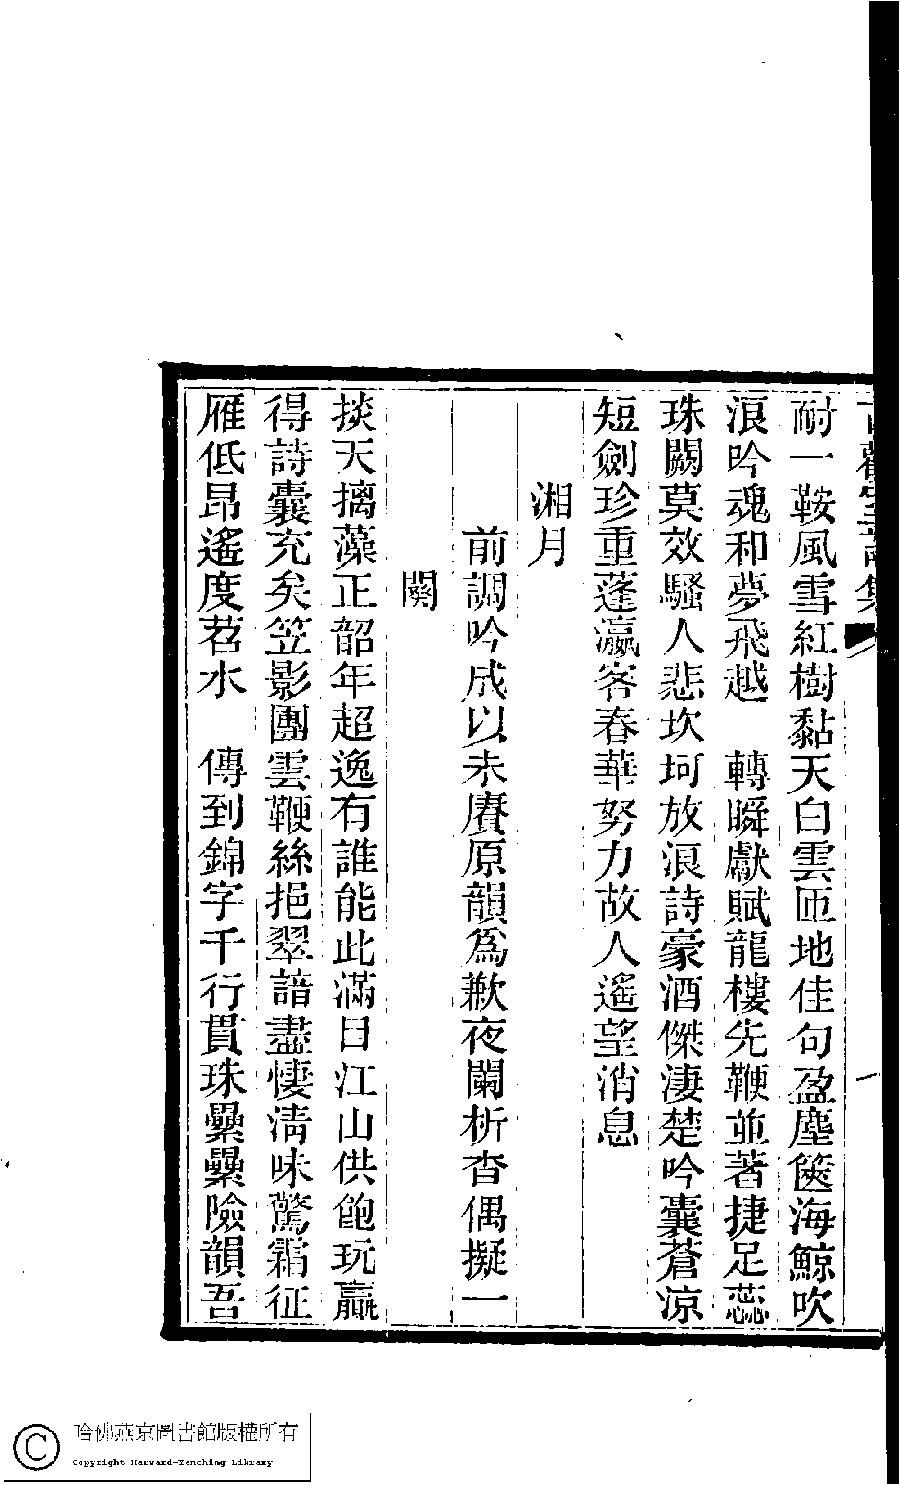 耐一鞍風雪紅樹黏天白雲匝地佳句盈塵篋海鯨吹
浪吟魂和夢飛越　轉瞬獻賦龍樓先鞭並著捷足蕊
珠闕莫效騷人悲坎坷放浪詩豪酒傑淒楚吟囊蒼凉
短劍珍重蓬瀛客春華努力故人遙望消息
湘月
前調吟成以未賡原韻爲歉夜闌析杳偶擬一
闋
掞天摛藻正韶年超逸有誰能此滿目江山供飽玩贏
得詩囊充矣笠影團雲鞭絲挹翠諳盡悽清味驚霜征
雁低昂遙度苕水　傳到錦字千行貫珠纍纍險韻吾
哈佛燕京圖書館版權所有
Copyright Harvard-Yenching Library